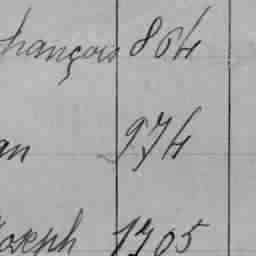 françois 864
an 974
Joseph 1705